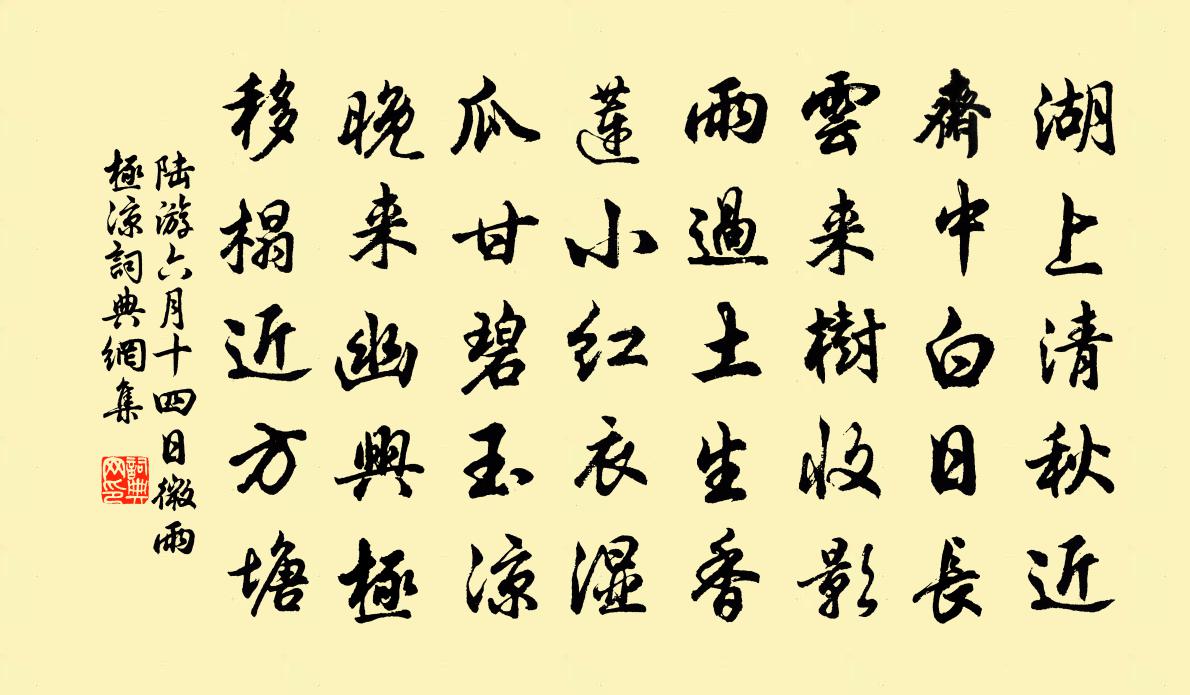 湖上清秋近
齋中白日長
雲来樹收影
雨過土生香
蓮小红衣濕
瓜甘碧玉凉
晚来幽興極
移榻近方塘
陆游六月十四日微雨
極凉詞典網集
詞典网印